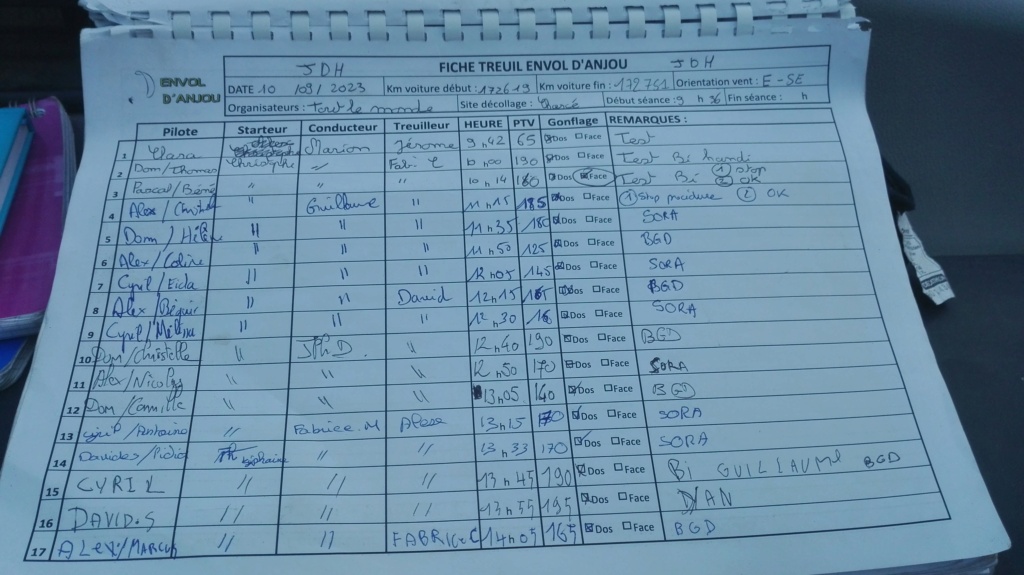 JDH FICHE TREUIL ENVOL D'ANJOU JDH
ENVOL D'ANJOU
DATE 10 / 09 / 2023 Km voiture début : 172619 Km voiture fin : 172751 Orientation vent : E - SE
Organisateurs : Tout le monde Site décollage : Début séance : 9 h 36 Fin séance : h
Pilote Starteur Conducteur Treuilleur HEURE PTV Gonflage REMARQUES :
1 Clara Marion Jérome 9 h 42 65 Dos Face Test
2 Dom/Thomas Christophe " Fabrice C 10 h 00 190 Dos Face Test Bi handi
3 Pascal/Béné " " " 10 h 14 160 Dos Face Test Bi ① stop ② OK
4 Alex / " Guillaume " 11 h 15 185 Dos Face ① Stop procédure ② OK
5 Dom / Hélène " " " 11 h 35 180 Dos Face SORA
6 Alex/Coline " " " 11 h 50 125 Dos Face BGD
7 Cyril / " " " 12 h 05 145 Dos Face SORA
8 Alex / " " David 12 h 15 Dos Face BGD
9 Cyril / " " " 12 h 30 16 Dos Face SORA
10 Dom/Christelle " JPh.D. " 12 h 40 190 Dos Face BGD
11 Alex/Nicolas " " " 12 h 50 170 Dos Face SORA
12 Dom/Camille " " " 13 h 05 140 Dos Face BGD
13 Cyril/Antoine " Fabrice.M 13 h 15 170 Dos Face SORA
14 " " 13 h 33 170 Dos Face SORA
15 CYRIL " " " 13 h 45 190 Dos Face Bi GUILLAUME BGD
16 DAVID.S " " " 13 h 55 195 Dos Face
17 ALEX/MARCUS " " FABRICE C 14 h 05 165 Dos Face BGD